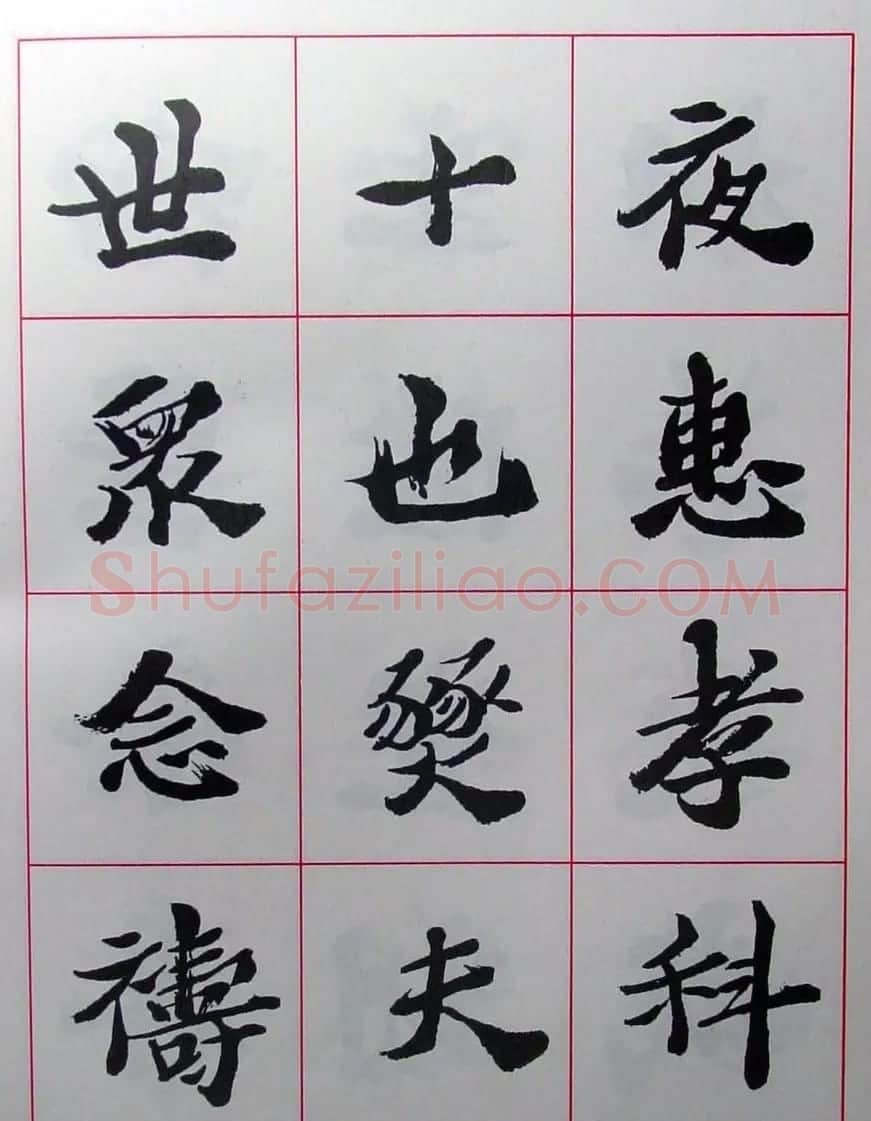 夜惠孝科
十也燹夫
世眾念禱
Shufaziliao.COM